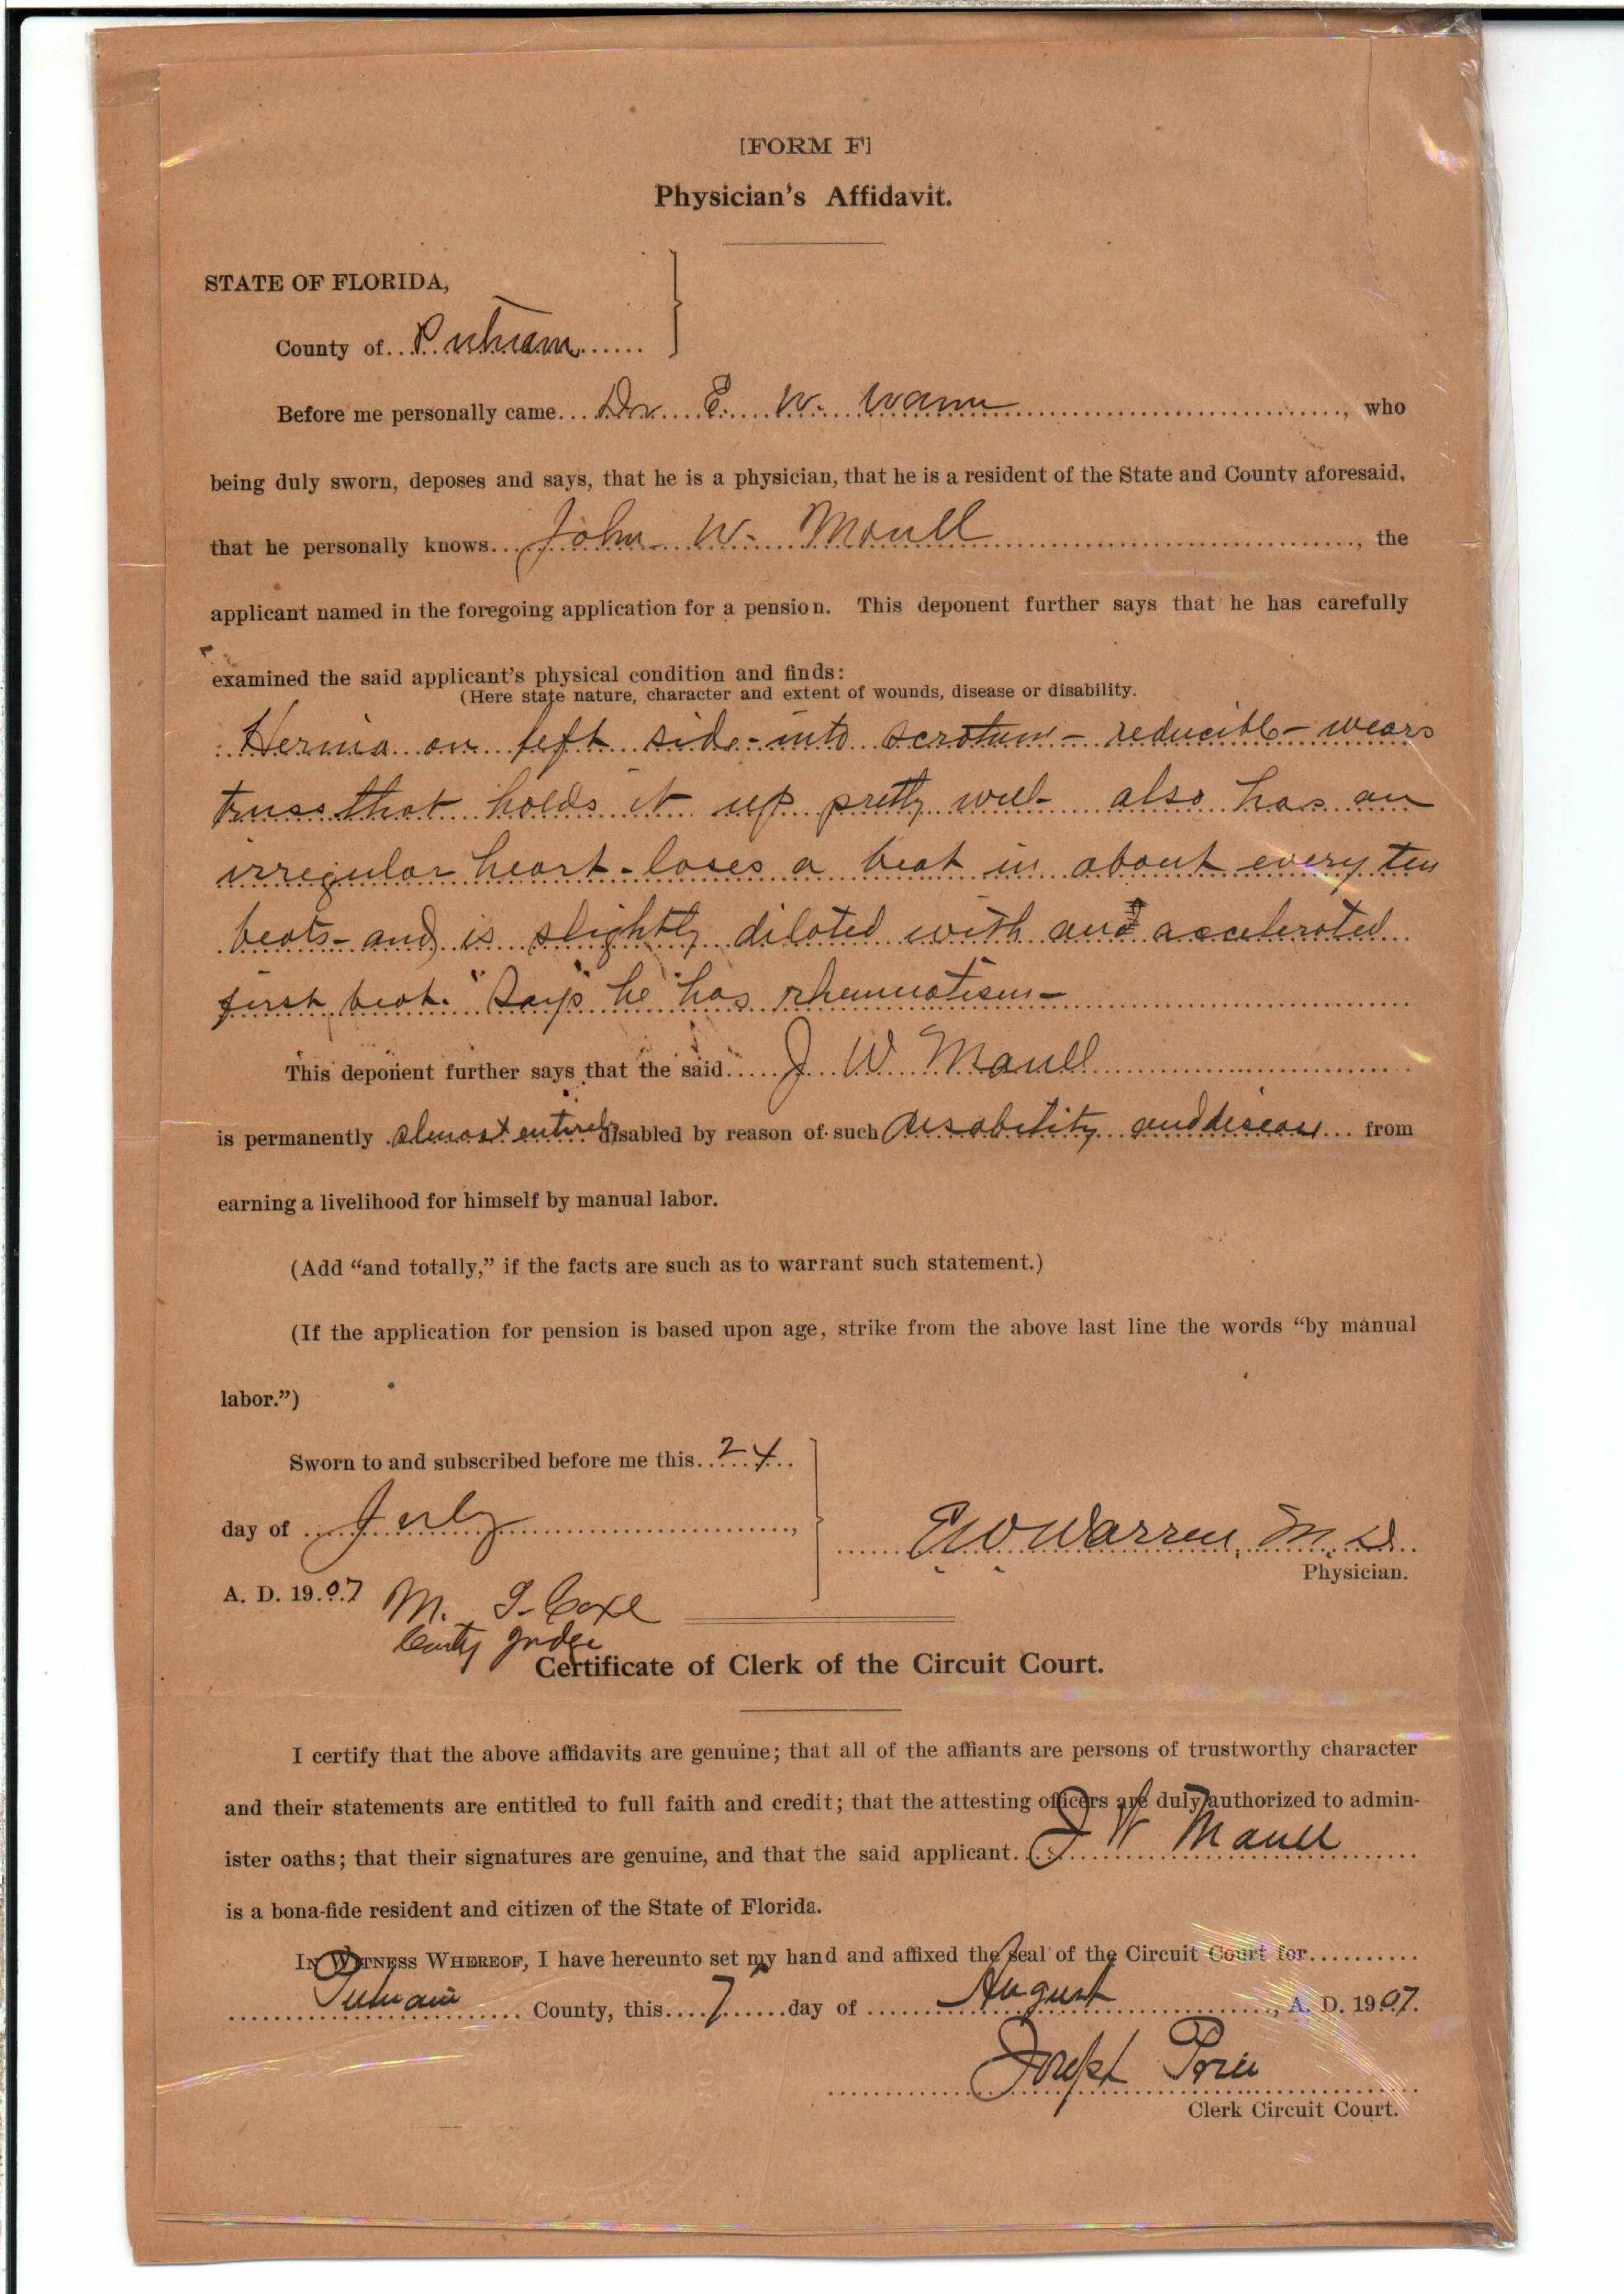 [FORM F]
Physician's Affidavit.
STATE OF FLORIDA,
County of Putnam
Before me personally came Dr. E. W. Warren, who
being duly sworn, deposes and says, that he is a physician, that he is a resident of the State and County aforesaid,
that he personally knows John W. Maull, the
applicant named in the foregoing application for a pension. This deponent further says that he has carefully
examined the said applicant's physical condition and finds:
(Here state nature, character and extent of wounds, disease or disability.
Hernia on left side - into scrotum - reducible - wears
truss that holds it up pretty well - also has an
irregular heart - loses a beat in about every ten
beats - and is slightly dilated with and accelerated
first beat. "Says he" has rheumatism -
This deponent further says that the said J W. Maull
is permanently almost entirely disabled by reason of such disability and disease from
earning a livelihood for himself by manual labor.
(Add "and totally," if the facts are such as to warrant such statement.)
(If the application for pension is based upon age, strike from the above last line the words "by manual
labor.")
Sworn to and subscribed before me this 24
day of July,
A. D. 1907
M. I. Coxe
County Judge
E W Warren, M. D.
Physician.
Certificate of Clerk of the Circuit Court.
I certify that the above affidavits are genuine; that all of the affiants are persons of trustworthy character
and their statements are entitled to full faith and credit; that the attesting officers are duly authorized to admin-
ister oaths; that their signatures are genuine, and that the said applicant J W Maull
is a bona-fide resident and citizen of the State of Florida.
IN WITNESS WHEREOF, I have hereunto set my hand and affixed the seal of the Circuit Court for
Putnam County, this 7 day of August, A. D. 1907.
Joseph Price
Clerk Circuit Court.